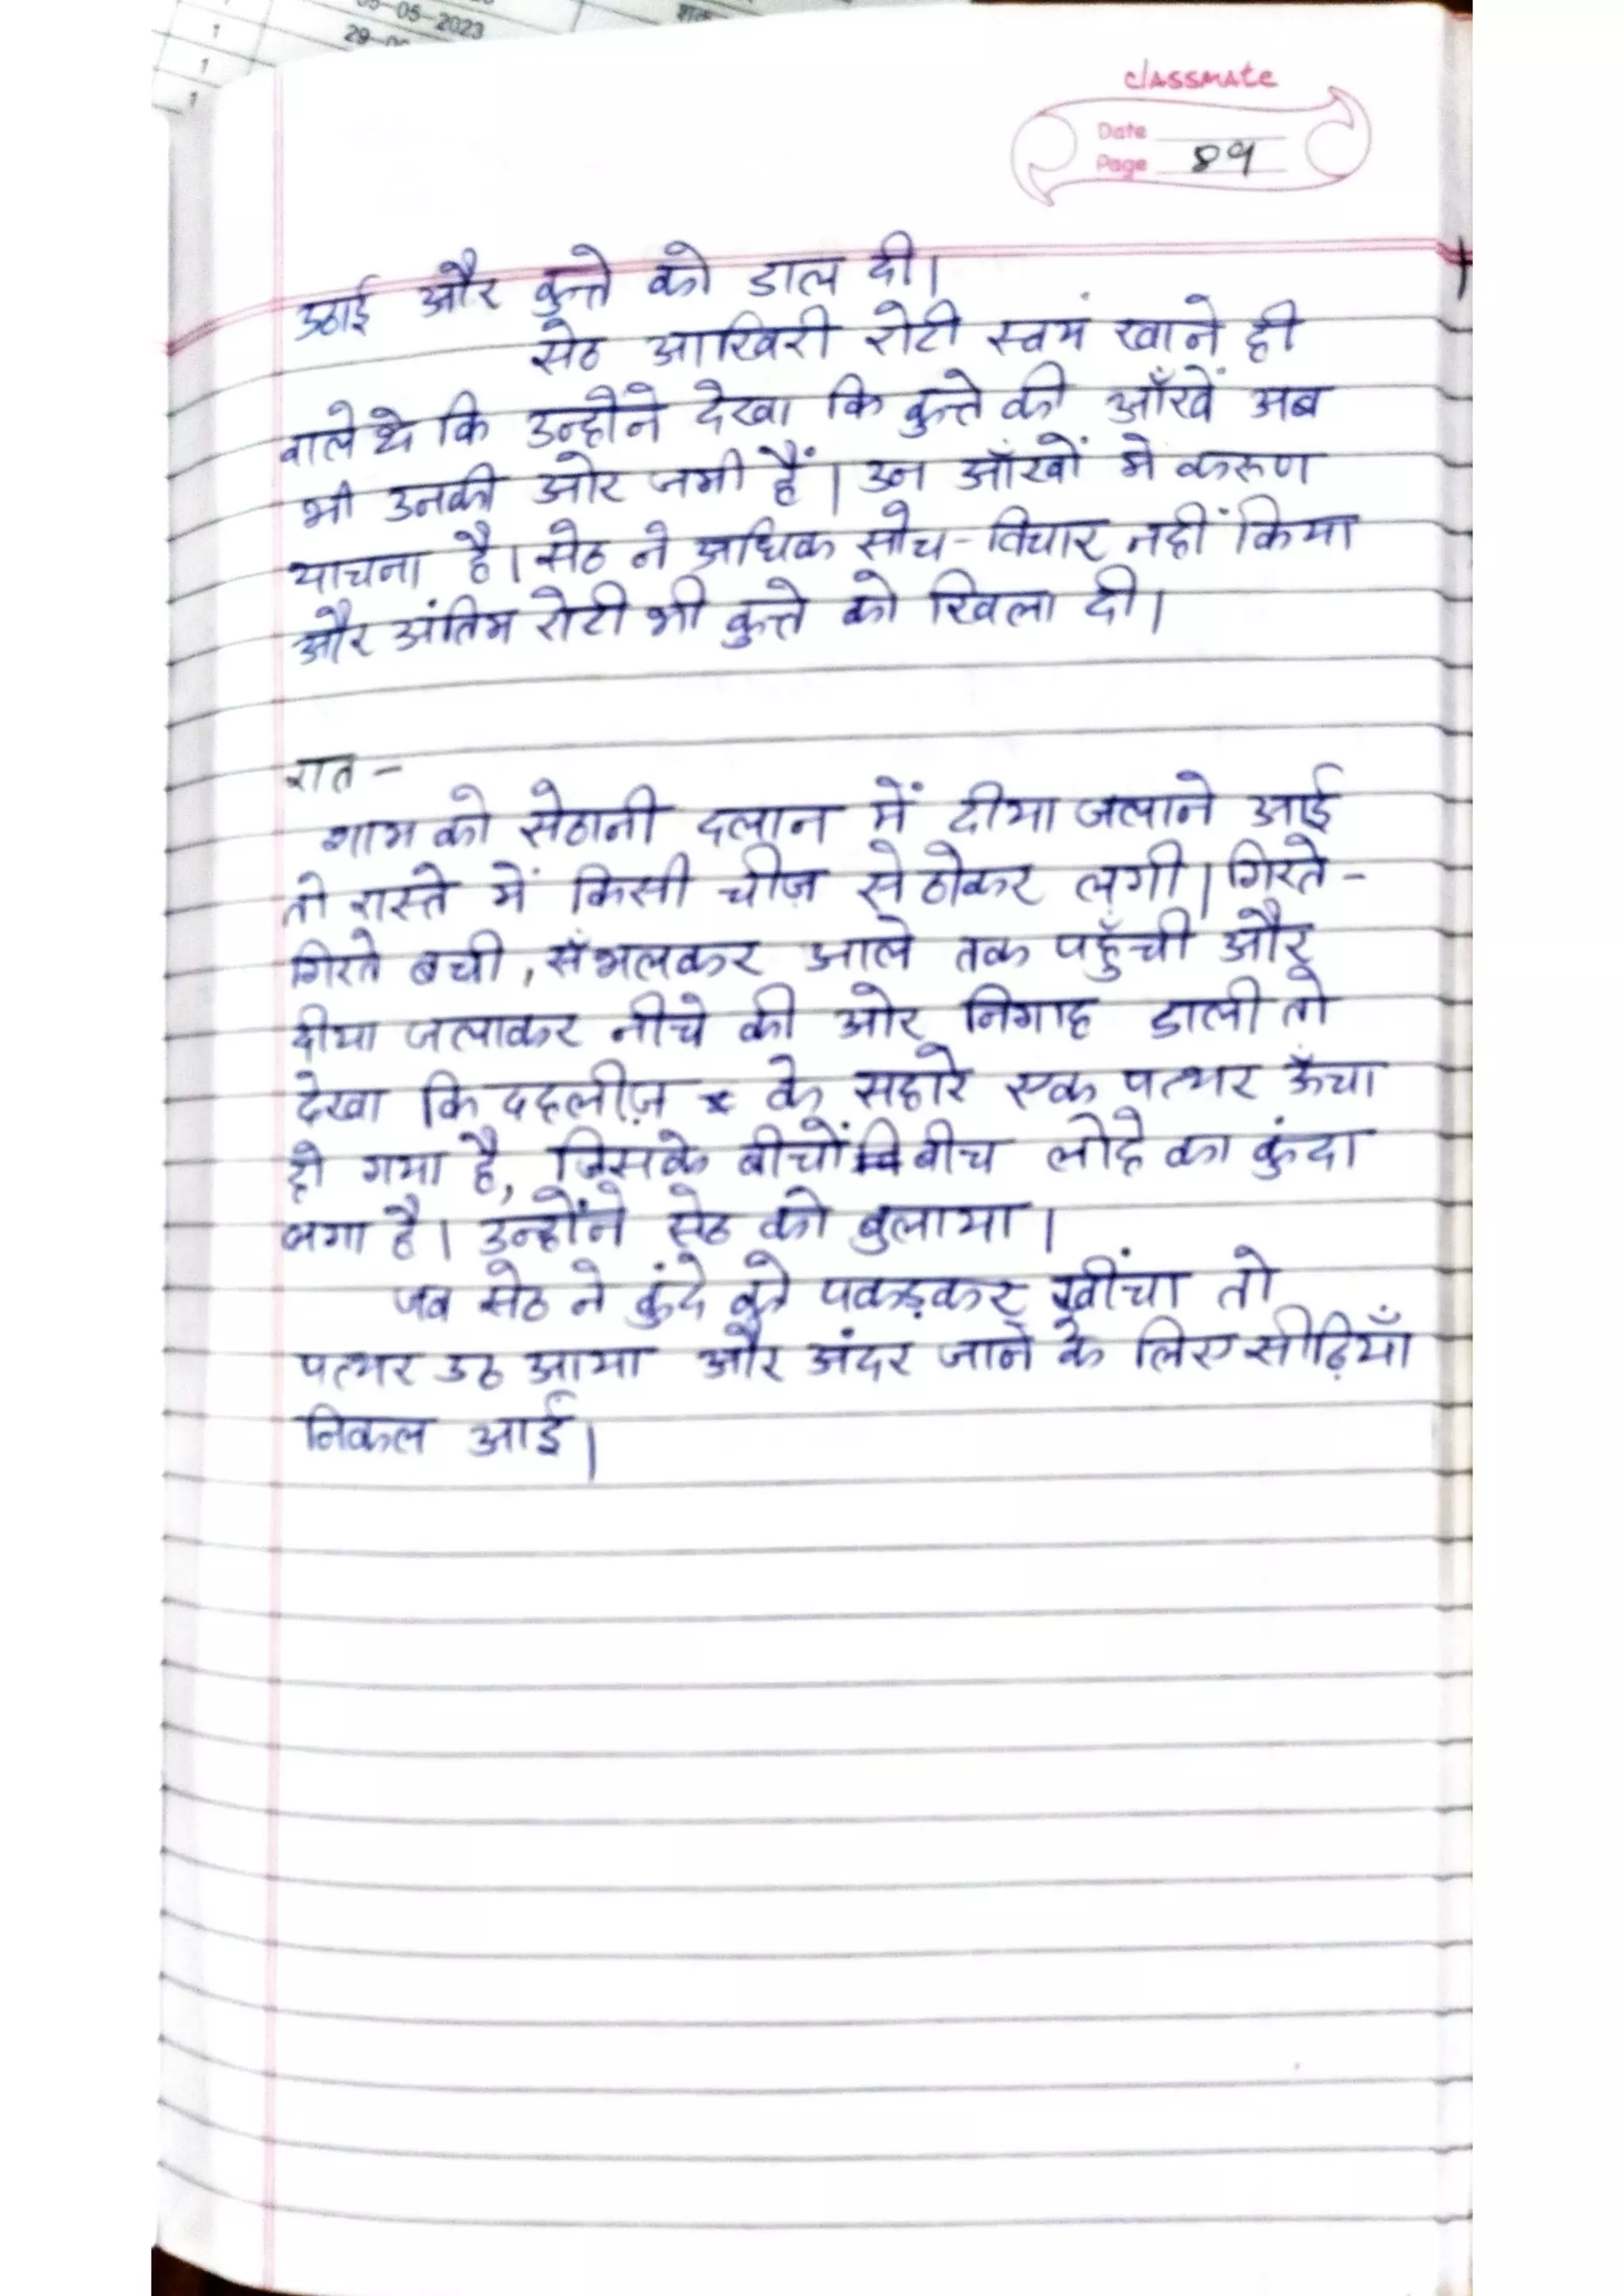 05-05-2023
1
29-0
1
1
classmate
Date
Page 89
उठाई और कुत्ते को डाल दी।
सेठ आखिरी रोटी स्वयं खाने ही
वाले थे कि उन्होंने देखा कि कुत्ते की आँखें अब
भी उनकी ओर जमी हैं। उन आँखों में करुण
याचना है। सेठ ने अधिक सोच-विचार नहीं किया
और अंतिम रोटी भी कुत्ते को खिला दी।
रात -
शाम को सेठानी दलान में दीया जलाने आई
तो रास्ते में किसी चीज़ से ठोकर लगी। गिरते-
गिरते बची, सँभलकर आले तक पहुँची और
दीया जलाकर नीचे की ओर निगाह डाली तो
देखा कि दहलीज़ के सहारे एक पत्थर ऊँचा
हो गया है, जिसके बीचों बीच लोहे का कुंदा
लगा है। उन्होंने सेठ को बुलाया।
जब सेठ ने कुंदे को पकड़कर खींचा तो
पत्थर उठ आया और अंदर जाने के लिए सीढ़ियाँ
निकल आई।